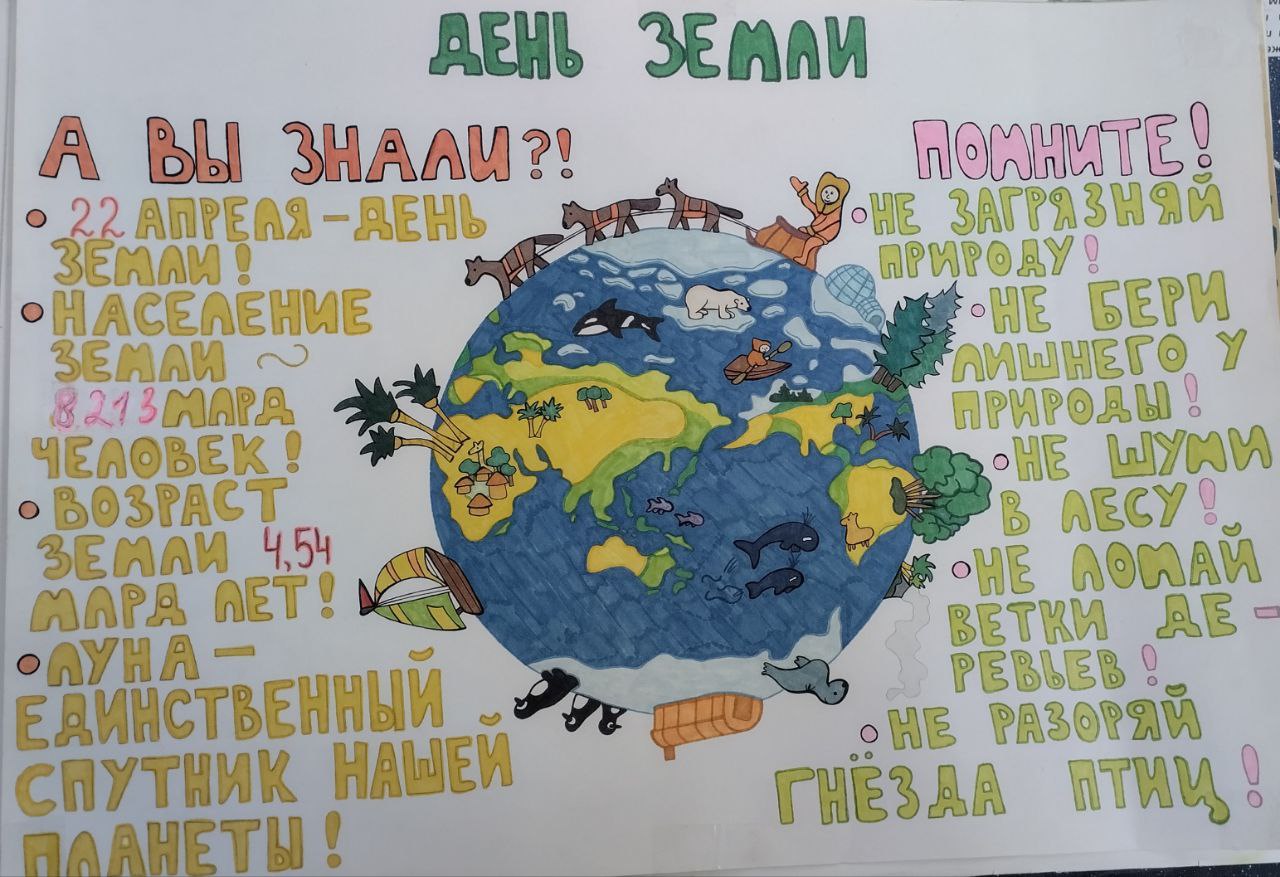 ДЕНЬ ЗЕМЛИ
А ВЫ ЗНАЛИ?!
22 АПРЕЛЯ – ДЕНЬ
ЗЕМЛИ!
НАСЕЛЕНИЕ
ЗЕМЛИ ~
8.213 МЛРД
ЧЕЛОВЕК!
ВОЗРАСТ
ЗЕМЛИ 4,54
МЛРД ЛЕТ!
ЛУНА –
ЕДИНСТВЕННЫЙ
СПУТНИК НАШЕЙ
ПЛАНЕТЫ!
ПОМНИТЕ!
НЕ ЗАГРЯЗНЯЙ
ПРИРОДУ!
НЕ БЕРИ
ЛИШНЕГО У
ПРИРОДЫ!
НЕ ШУМИ
В ЛЕСУ!
НЕ ЛОМАЙ
ВЕТКИ ДЕ-
РЕВЬЕВ!
НЕ РАЗОРЯЙ
ГНЁЗДА ПТИЦ!